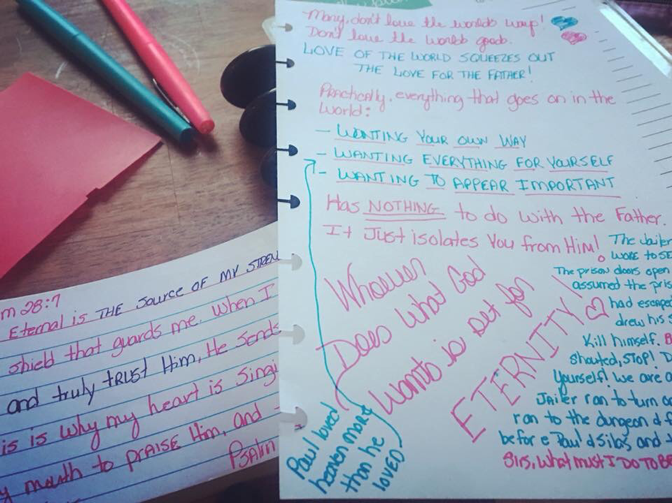 Mary, don't love the world's way!
Don't love the world's goods.
LOVE OF THE WORLD SQUEEZES OUT
THE LOVE FOR THE FATHER!
Practically, everything that goes on in the
World:
- WANTING YOUR OWN WAY
- WANTING EVERYTHING FOR YOURSELF
- WANTING TO APPEAR IMPORTANT
Has NOTHING to do with the Father.
It Just isolates You from Him!
Whoever
Does What God
Wants is set for
ETERNITY!
Paul loved
heaven more
than he
LOVED
The Jailer
woke to SE
The prison doors open
assumed the pris
had escape
drew his s
Kill himself. B
shouted, STOP!
Yourself! we are a
Jailer ran to turn o
ran to the dungeon & f
before Paul & Silas and
Sirs, What must I DO TO BE
m 28:7
Eternal is THE Source OF MY STREN
shield that guards me. When I
and truly TRUST Him, He sends
is is why my heart is singi
y mouth to PRAISE Him, and
Psalm